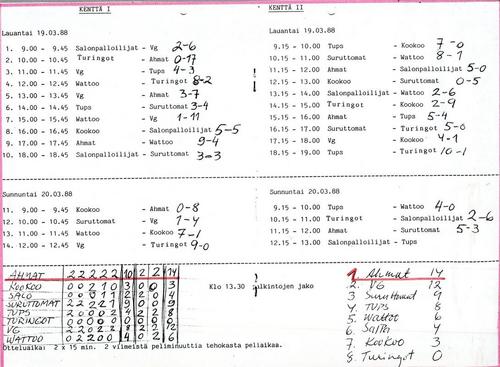 KENTTÄ I
Lauantai 19.03.88
1. 9.00 - 9.45 Salonpalloilijat - Vg 2-6
2. 10.00 - 10.45 Turingot - Ahmat 0-17
3. 11.00 - 11.45 Vg - Tups 4-3
4. 12.00 - 12.45 Wattoo - Turingot 8-2
5. 13.00 - 13.45 Vg - Ahmat 3-7
6. 14.00 - 14.45 Tups - Suruttomat 3-4
7. 15.00 - 15.45 Vg - Wattoo 1-11
8. 16.00 - 16.45 Kookoo - Salonpalloilijat 5-5
9. 17.00 - 17.45 Ahmat - Wattoo 9-4
10. 18.00 - 18.45 Salonpalloilijat - Suruttomat 3=3
Sunnuntai 20.03.88
11. 9.00 - 9.45 Kookoo - Ahmat 0-8
12. 10.00 - 10.45 Suruttomat - Vg 1-4
13. 11.00 - 11.45 Wattoo - Kookoo 7-1
14. 12.00 - 12.45 Vg - Turingot 9-0
KENTTÄ II
Lauantai 19.03.88
9.15 - 10.00 Tups - Kookoo 7-0
10.15 - 11.00 Suruttomat - Wattoo 8-1
11.15 - 12.00 Ahmat - Salonpalloilijat 5-0
12.15 - 13.00 Kookoo - Suruttomat 0-5
13.15 - 14.00 Salonpalloilijat - Wattoo 2-6
14.15 - 15.00 Turingot - Kookoo 2-9
15.15 - 16.00 Ahmat - Tups 5-4
16.15 - 17.00 Suruttomat - Turingot 5-0
17.15 - 18.00 Vg - Kookoo 4-1
18.15 - 19.00 Tups - Turingot 10-1
Sunnuntai 20.03.88
9.15 - 10.00 Tups - Wattoo 4-0
10.15 - 11.00 Turingot - Salonpalloilijat 2-6
11.15 - 12.00 Ahmat - Suruttomat 5-3
12.15 - 13.00 Salonpalloilijat - Tups
AHMAT 2 2 2 2 2 10 2 2 14
KOOKOO 0 0 2 1 0 3 0 0 3
SALO
SURUTTOMAT
TUPS
TURINGOT 0 0 0 0 0 0 0 0 0
VG
WATTOO 0 2 2 0 0 4 0 2 6
Klo 13.30 palkintojen jako
1. Ahmat 14
2. VG 12
3. Suruttomat 9
4. TUPS 8
5. Wattoo 6
6. 4
7. KooKoo 3
8. Turingot 0
Otteluaika: 2 x 15 min. 2 viimeistä peliminuuttia tehokasta peliaikaa.